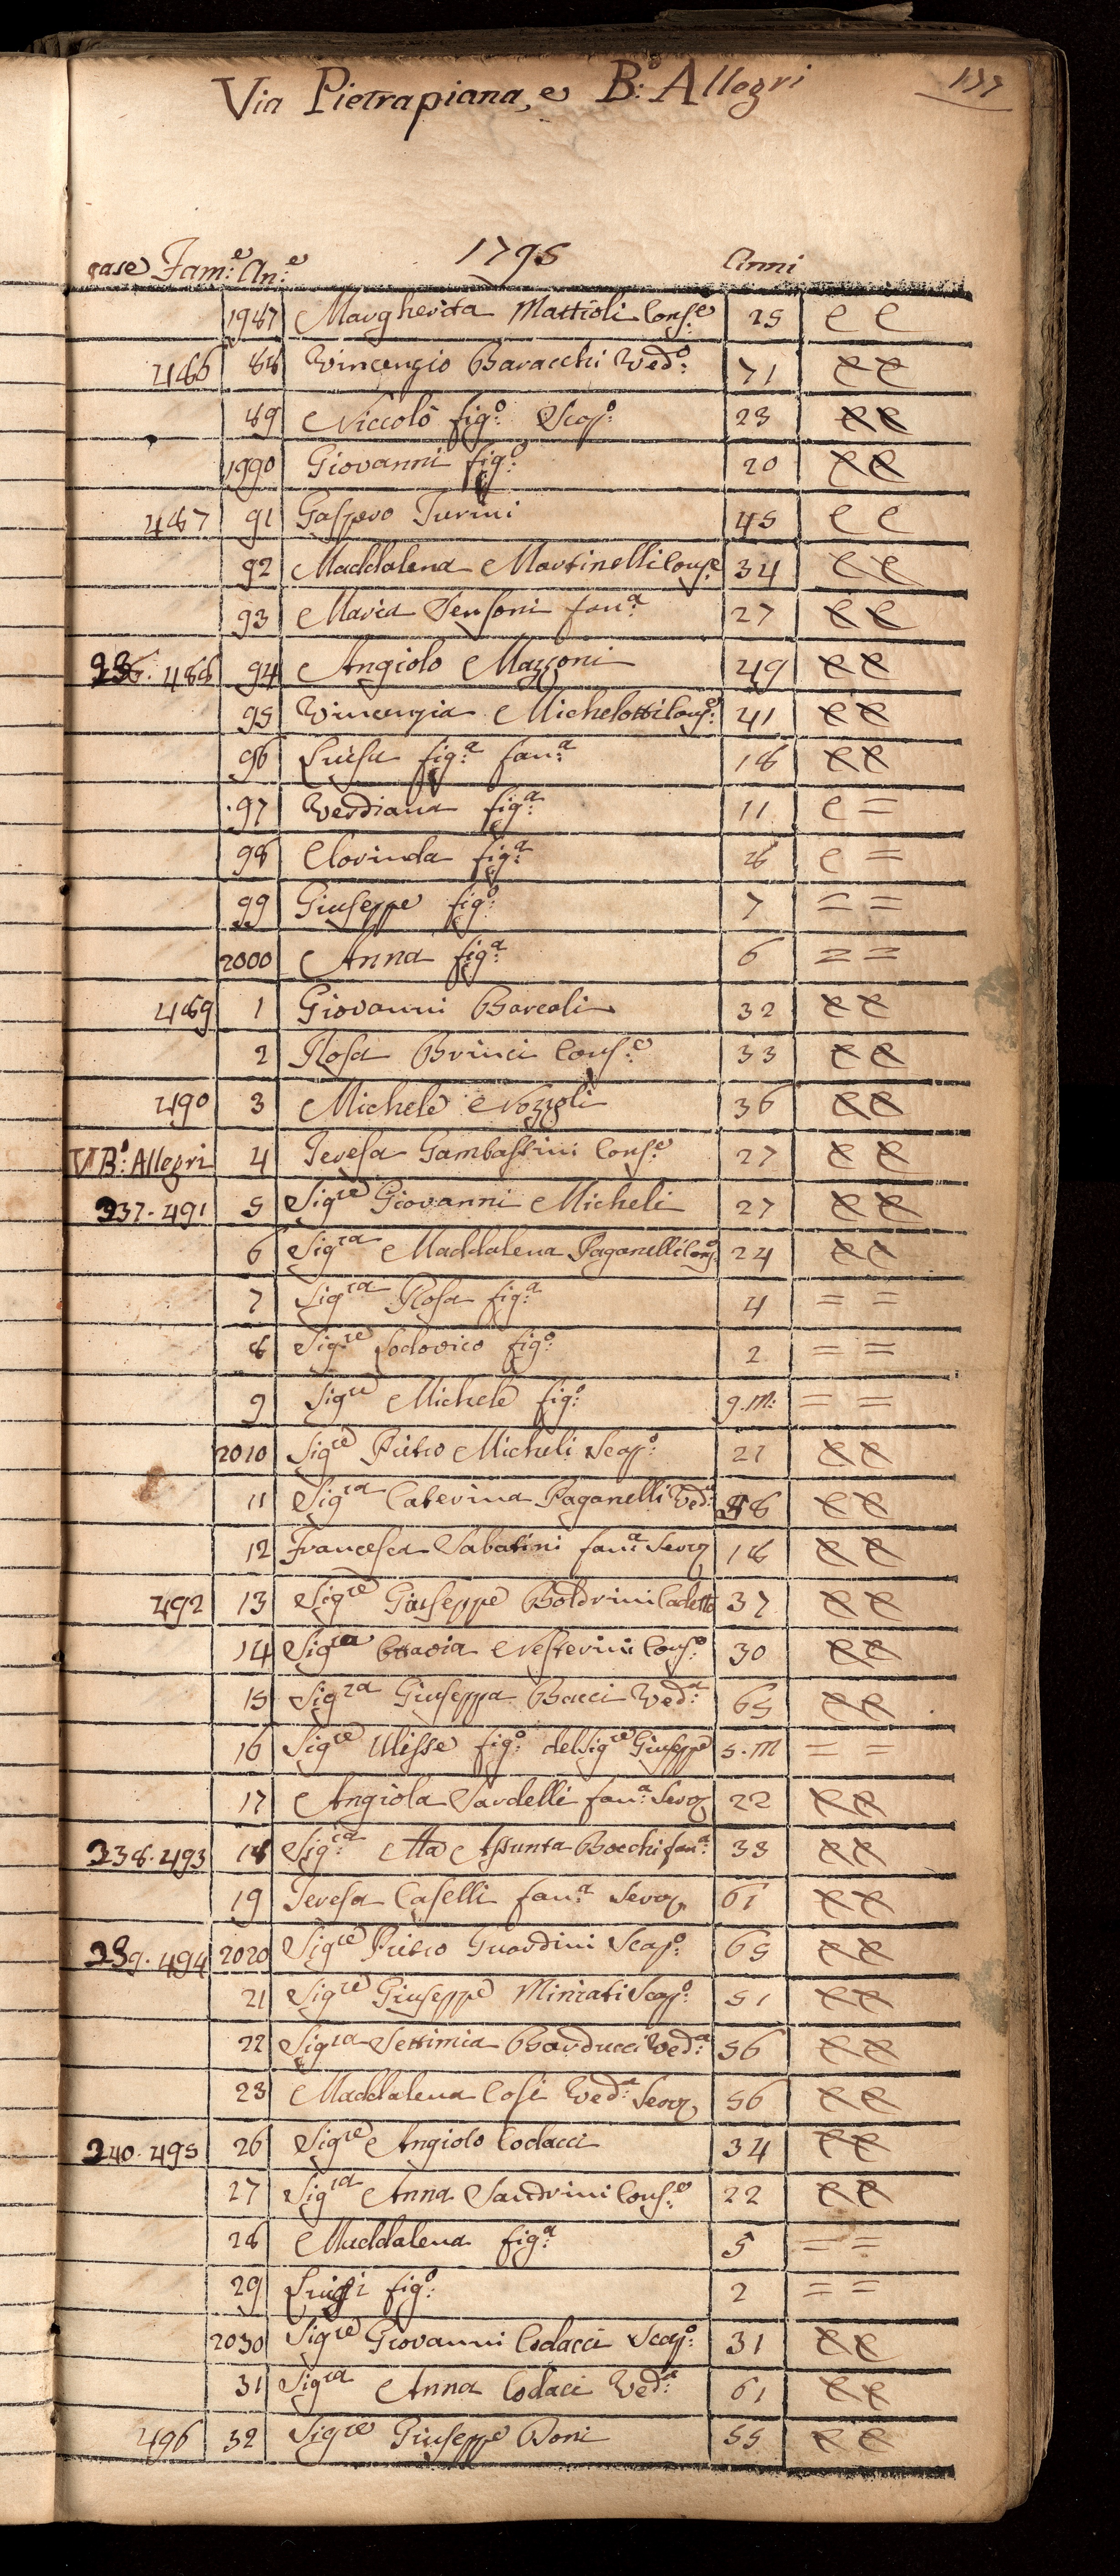 Via Pietrapiana, e B:o Allegri
case Fam:e An:e 1795 Anni
1987 Margherita Mattioli Cons:e 25 C C
486 88 Vincenzio Baracchi Ved:o 71 CC
89 Niccolò fig:o Scap:o 23 CC
1990 Giovanni fig:o 20 CC
487 91 Gaspero Turini 45 C C
92 Maddalena Martinelli Cons:e 34 CC
93 Maria Sensoni fan:a 27 CC
236. 488 94 Angiolo Mazzoni 49 CC
95 Vincenzia Michelotti Cons:e 41 CC
96 Luisa fig:a fan:a 18 CC
97 Verdiana fig:a 11 C =
98 Clorinda fig:a C =
99 Giuseppe fig:o 7 = =
2000 Anna fig:a 6 = =
489 1 Giovanni Barcali 32 CC
2 Rosa Brinci Cons:e 33 CC
490 3 Michele Nozzoli 36 CC
V B:o Allegri 4 Teresa Gambassini Cons:e 27 CC
237. 491 5 Sigre Giovanni Micheli 27 CC
6 Sigra Maddalena Paganelli Cons:e 24 CC
7 Sigra Rosa fig:a 4 = =
8 Sigre Lodovico fig:o 2 = =
9 Sigre Michele fig:o 9.m: = =
2010 Sigre Pietro Micheli Scap:o 21 CC
11 Sigra Caterina Paganelli Ved:a CC
12 Francesca Sabatini fan:a Serva 18 CC
492 13 Sigre Giuseppe Boldrini Cadetto 37 CC
14 Sigra Ottavia Nesterini Cons:e 30 CC
15 Sigra Giuseppa Bacci Ved:a 65 CC
16 Sigre Ulisse fig:o del Sigre Giuseppe 5.M = =
17 Angiola Sardelli fan:a Serva 22 CC
238. 493 18 Sig:ra Ma Assunta Bocchi fan:a 33 CC
19 Teresa Caselli fan:a Serva 61 CC
239. 494 2020 Sigre Pietro Guardini Scap:o 65 CC
21 Sigre Giuseppe Miniati Scap:o 51 CC
22 Sigra Settimia Barducci Ved:a 56 CC
23 Maddalena Cosi Ved:a Serva 56 CC
240. 495 26 Sigre Angiolo Codacci 34 CC
27 Sigra Anna Sandrini Cons:e 22 CC
28 Maddalena fig:a 5 = =
29 Luigi fig:o 2 = =
2030 Sigre Giovanni Codacci Scap:o 31 CC
31 Sigra Anna Codaci Ved:a 61 CC
496 32 Sigre Giuseppe Boni 55 CC